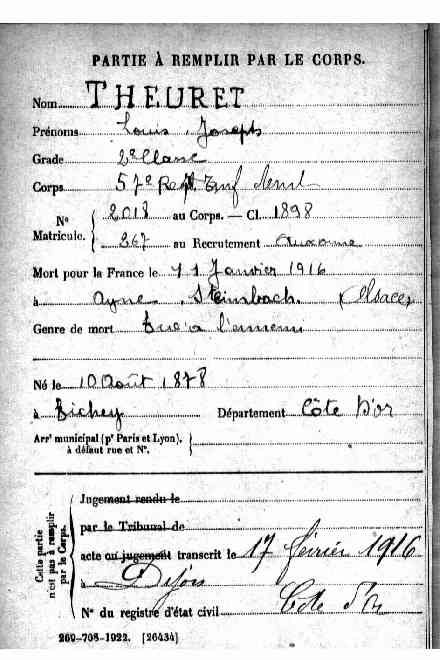 PARTIE À REMPLIR PAR LE CORPS.
Nom THEURET
Prénoms Louis Joseph
Grade 2e Classe
Corps 57e Regt Inf
Nº Matricule. 2018 au Corps. — Cl. 1898
267 au Recrutement Auxonne
Mort pour la France le 11 Janvier 1916
à Steinbach. (Alsace)
Genre de mort Tué à l'ennemi
Né le 10 Août 1878
à Tichey Département Côte D'or
Arrt municipal (pr Paris et Lyon), à défaut rue et Nº.
Cette partie n'est pas à remplir par le Corps.
Jugement rendu le
par le Tribunal de
acte ou jugement transcrit le 17 février 1916
à Dijon
Nº du registre d'état civil Côte d'Or
269-708-1922. [26434]